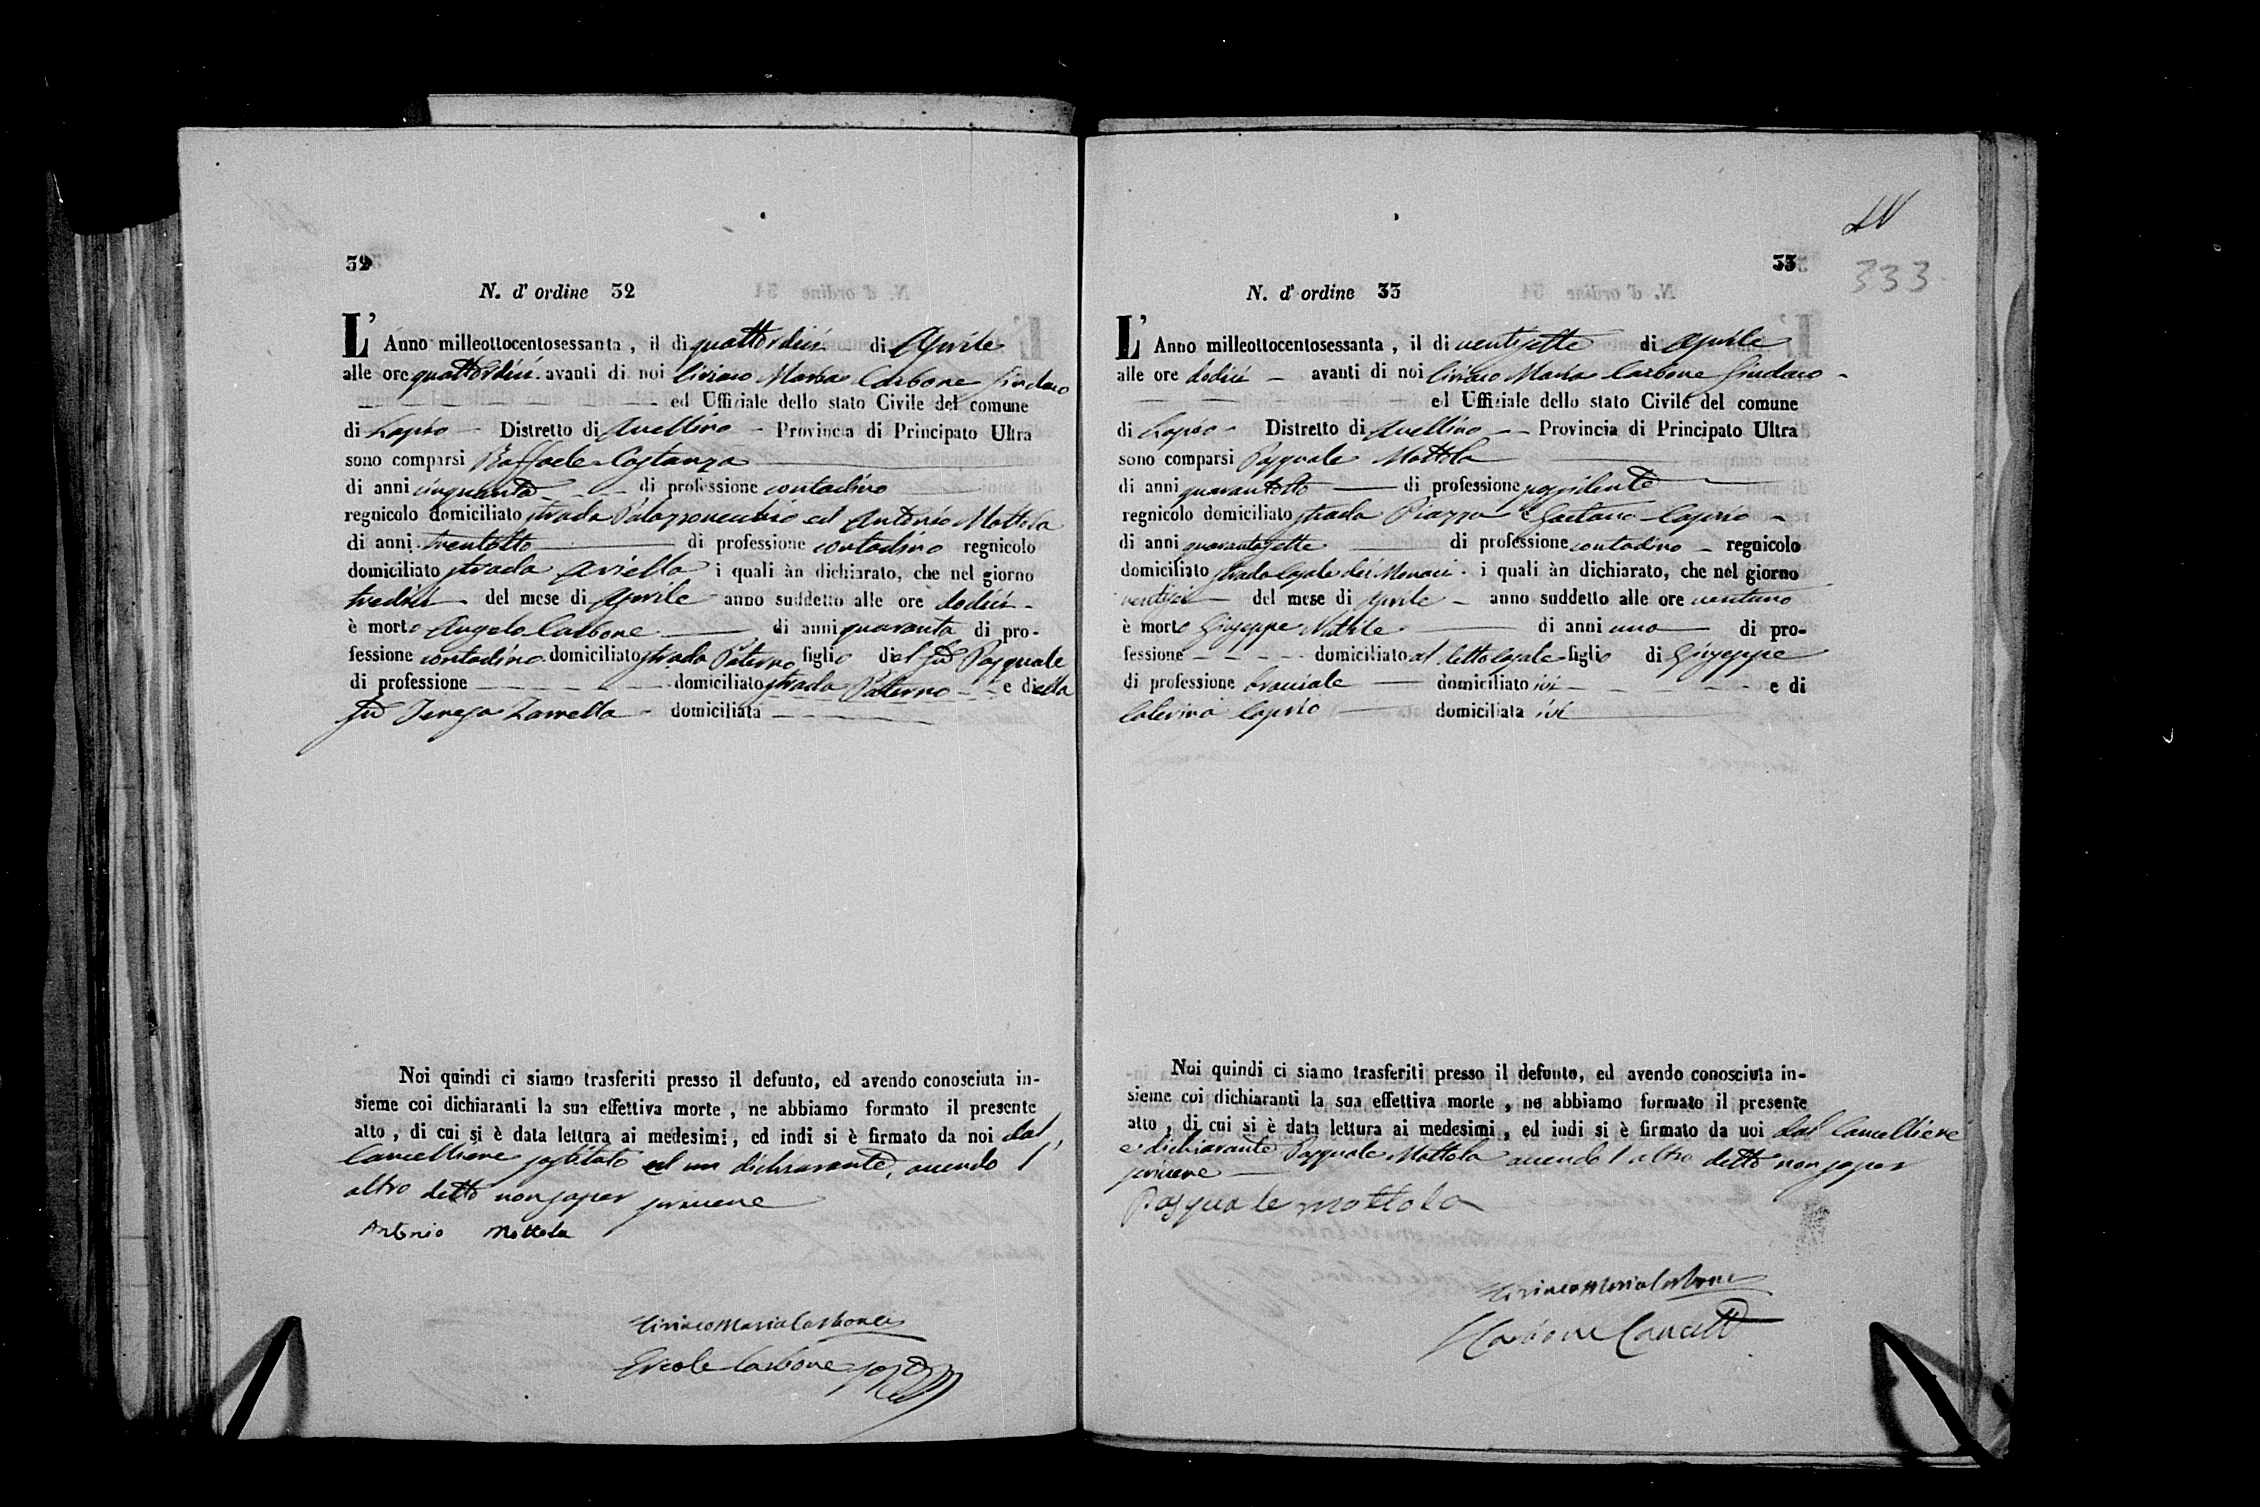 32
N. d' ordine 32
L' Anno milleottocentosessanta, il di quattordici di Aprile
alle ore quattordici avanti di noi Ciriaco Maria Carbone Sindaco
ed Uffiziale dello stato Civile del comune
di Lapio Distretto di Avellino Provincia di Principato Ultra
sono comparsi Raffaele Costanza
di anni cinquanta di professione contadino
regnicolo domiciliato strada ed Antonio Mottola
di anni trentotto di professione contadino regnicolo
domiciliato strada Ariella i quali àn dichiarato, che nel giorno
tredici del mese di Aprile anno suddetto alle ore dodici
è morto Angelo Carbone di anni quaranta di pro-
fessione contadino domiciliato strada Paterno figlio del fu Pasquale
di professione domiciliato strada Paterno e della
fu Teresa Zarrella domiciliata
Noi quindi ci siamo trasferiti presso il defunto, ed avendo conosciuta in-
sieme coi dichiaranti la sua effettiva morte, ne abbiamo formato il presente
atto, di cui si è data lettura ai medesimi, ed indi si è firmato da noi dal
Cancelliere sostituto ed un dichiarante, avendo l'
altro detto non saper scrivere
Antonio Mottola
Ciriaco Maria Carbone
Ercole Carbone
33
333
N. d' ordine 33
L' Anno milleottocentosessanta, il di ventisette di Aprile
alle ore dodici avanti di noi Ciriaco Maria Carbone Sindaco
ed Uffiziale dello stato Civile del comune
di Lapio Distretto di Avellino Provincia di Principato Ultra
sono comparsi Pasquale Mottola
di anni quarantotto di professione possidente
regnicolo domiciliato strada Piazza e Gaetano Caprio
di anni quarantasette di professione contadino regnicolo
domiciliato strada Casale dei Monaci i quali àn dichiarato, che nel giorno
ventisei del mese di Aprile anno suddetto alle ore ventuno
è morto Giuseppe di anni uno di pro-
fessione domiciliato al detto Casale figlio di Giuseppe
di professione bracciale domiciliato ivi e di
Caterina Caprio domiciliata ivi
Noi quindi ci siamo trasferiti presso il defunto, ed avendo conosciuta in-
sieme coi dichiaranti la sua effettiva morte, ne abbiamo formato il presente
atto, di cui si è data lettura ai medesimi, ed indi si è firmato da noi dal Cancelliere
e dichiarante Pasquale Mottola avendo l'altro detto non saper
scrivere
Pasquale Mottola
Ciriaco Maria Carbone
Carbone Cancell